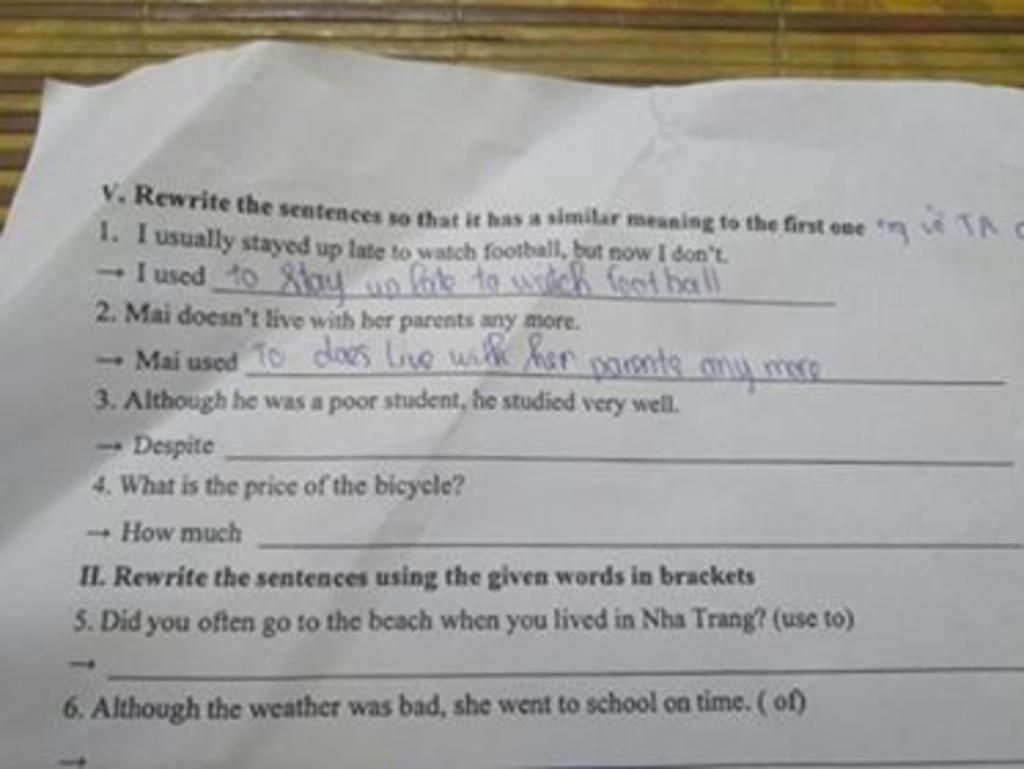 V. Rewrite the sentences so that it has a similar meaning to the first one
1. I usually stayed up late to watch football, but now I don't.
→ I used to stay up late to watch football
2. Mai doesn't live with her parents any more.
→ Mai used To does live with her parents any more
3. Although he was a poor student, he studied very well.
→ Despite
4. What is the price of the bicycle?
→ How much
II. Rewrite the sentences using the given words in brackets
5. Did you often go to the beach when you lived in Nha Trang? (use to)
→
6. Although the weather was bad, she went to school on time. ( of)
→